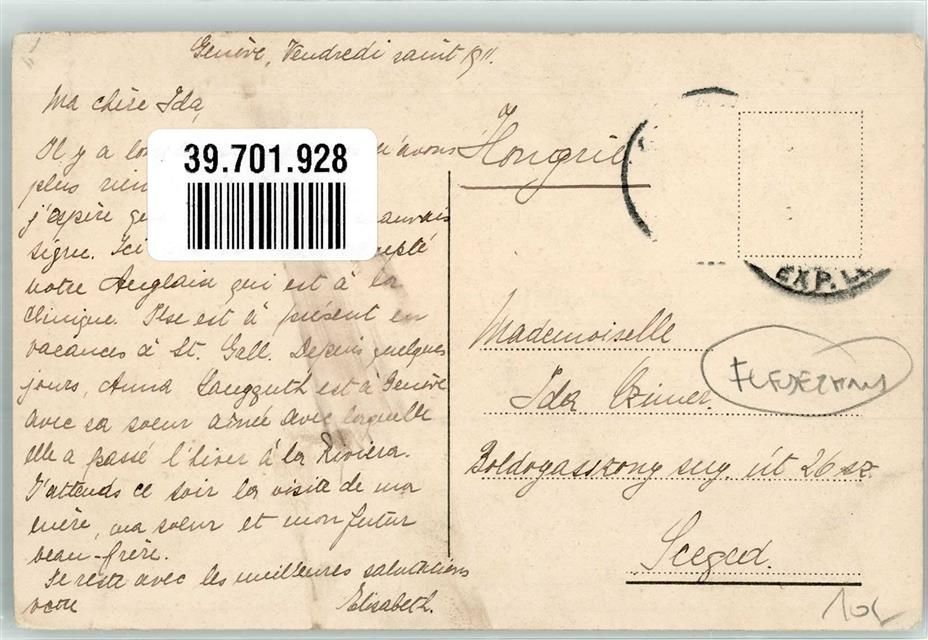 Genève, Vendredi saint 1911.
Ma chère Ida,
Il y a n'avons
plus rien
j'espère mauvais
signe. Ici
notre Anglais qui est à la
clinique. Ilse est à présent en
vacances à St. Gall. Depuis quelques
jours, Anna Langguth est à Genève
avec sa soeur aînée avec laquelle
elle a passé l'hiver à la Riviera.
J'attends ce soir la visite de ma
mère, ma soeur et mon futur
beau-frère.
Je reste avec les meilleures salutations
votre Elisabeth.
39.701.928
Hongrie
EXP.
Mademoiselle
Ida
Boldogasszony sug. út 26 sz.
Szeged.